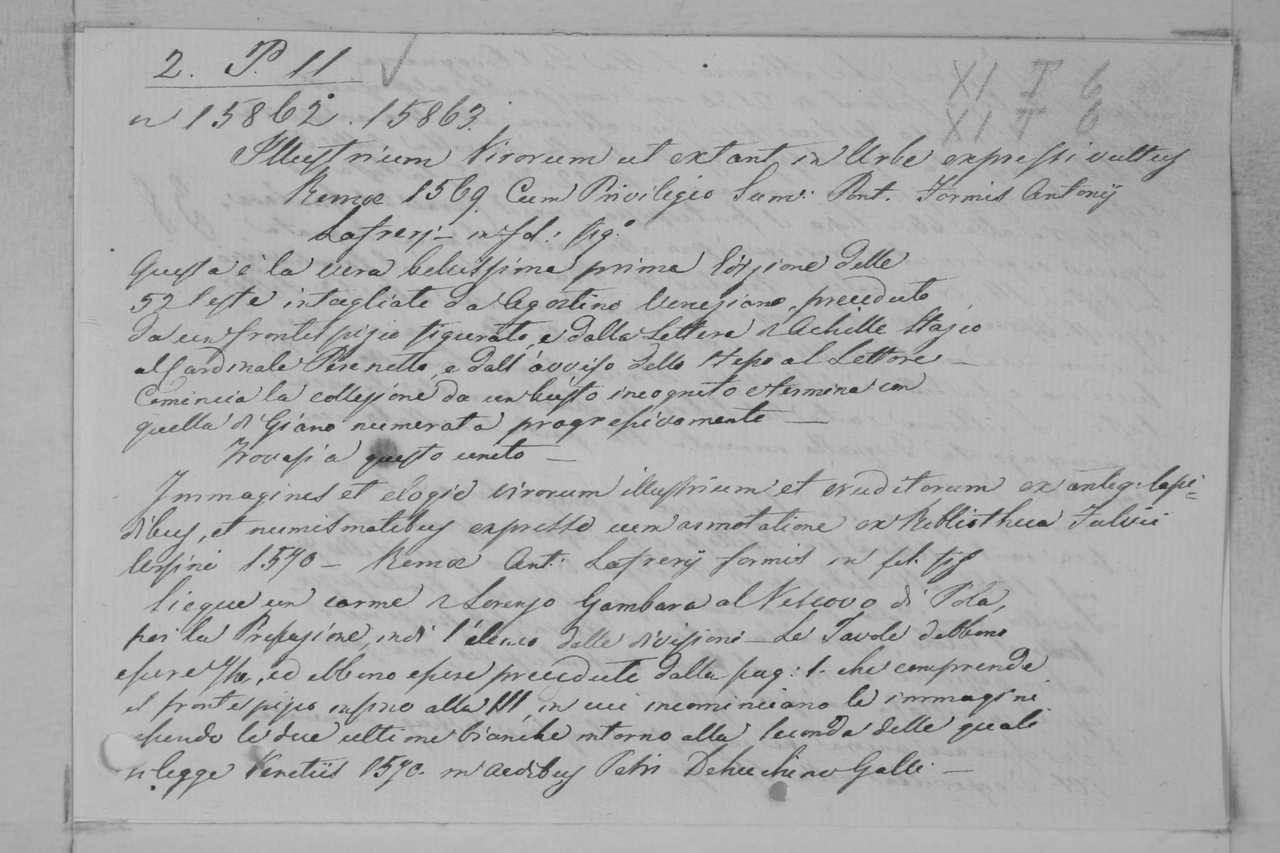 2. P. 11
XI T 6
n 15862. 15863.
XI T 6
Illustrium Virorum ut extant in Urbe expressi vultus
Romae 1569. Cum Privilegio Sum: Pont. Formis Antonij
Lafrerj - in fol: fig:
Questa è la vera bellissima prima Edizione delle
52 teste intagliate da Agostino Veneziano, preceduto
da un frontespizio figurato, e dalla Lettera d'Achille Stazio
al Cardinale Perenetto, e dall'avviso dello stesso al Lettore -
Comincia la collezione da un busto incognito e termina con
quella di Giano numerata progressivamente -
Trovasi a questo unito -
Immagines et elogia virorum illustrium et eruditorum ex antiq: lapi=
dibus, et numismatibus expressa cum annotatione ex Bibliotheca Fulvii
Ursini 1570 - Romae Ant: Lafrerij formis in fol. fig
Siegue un carme di Lorenzo Gambara al Vescovo di Pola,
poi la Prefazione, indi l'elenco delle divisioni - Le Tavole debbono
essere, ed ebbeno essere precedute dalla pag: 1. che comprende
il frontespizio insino alla III, in cui incominciano le immagini
essendo le due ultime bianche intorno alla seconda delle quali
si legge Venetiis 1570. in aedibus Petri Dehuchino Galli -